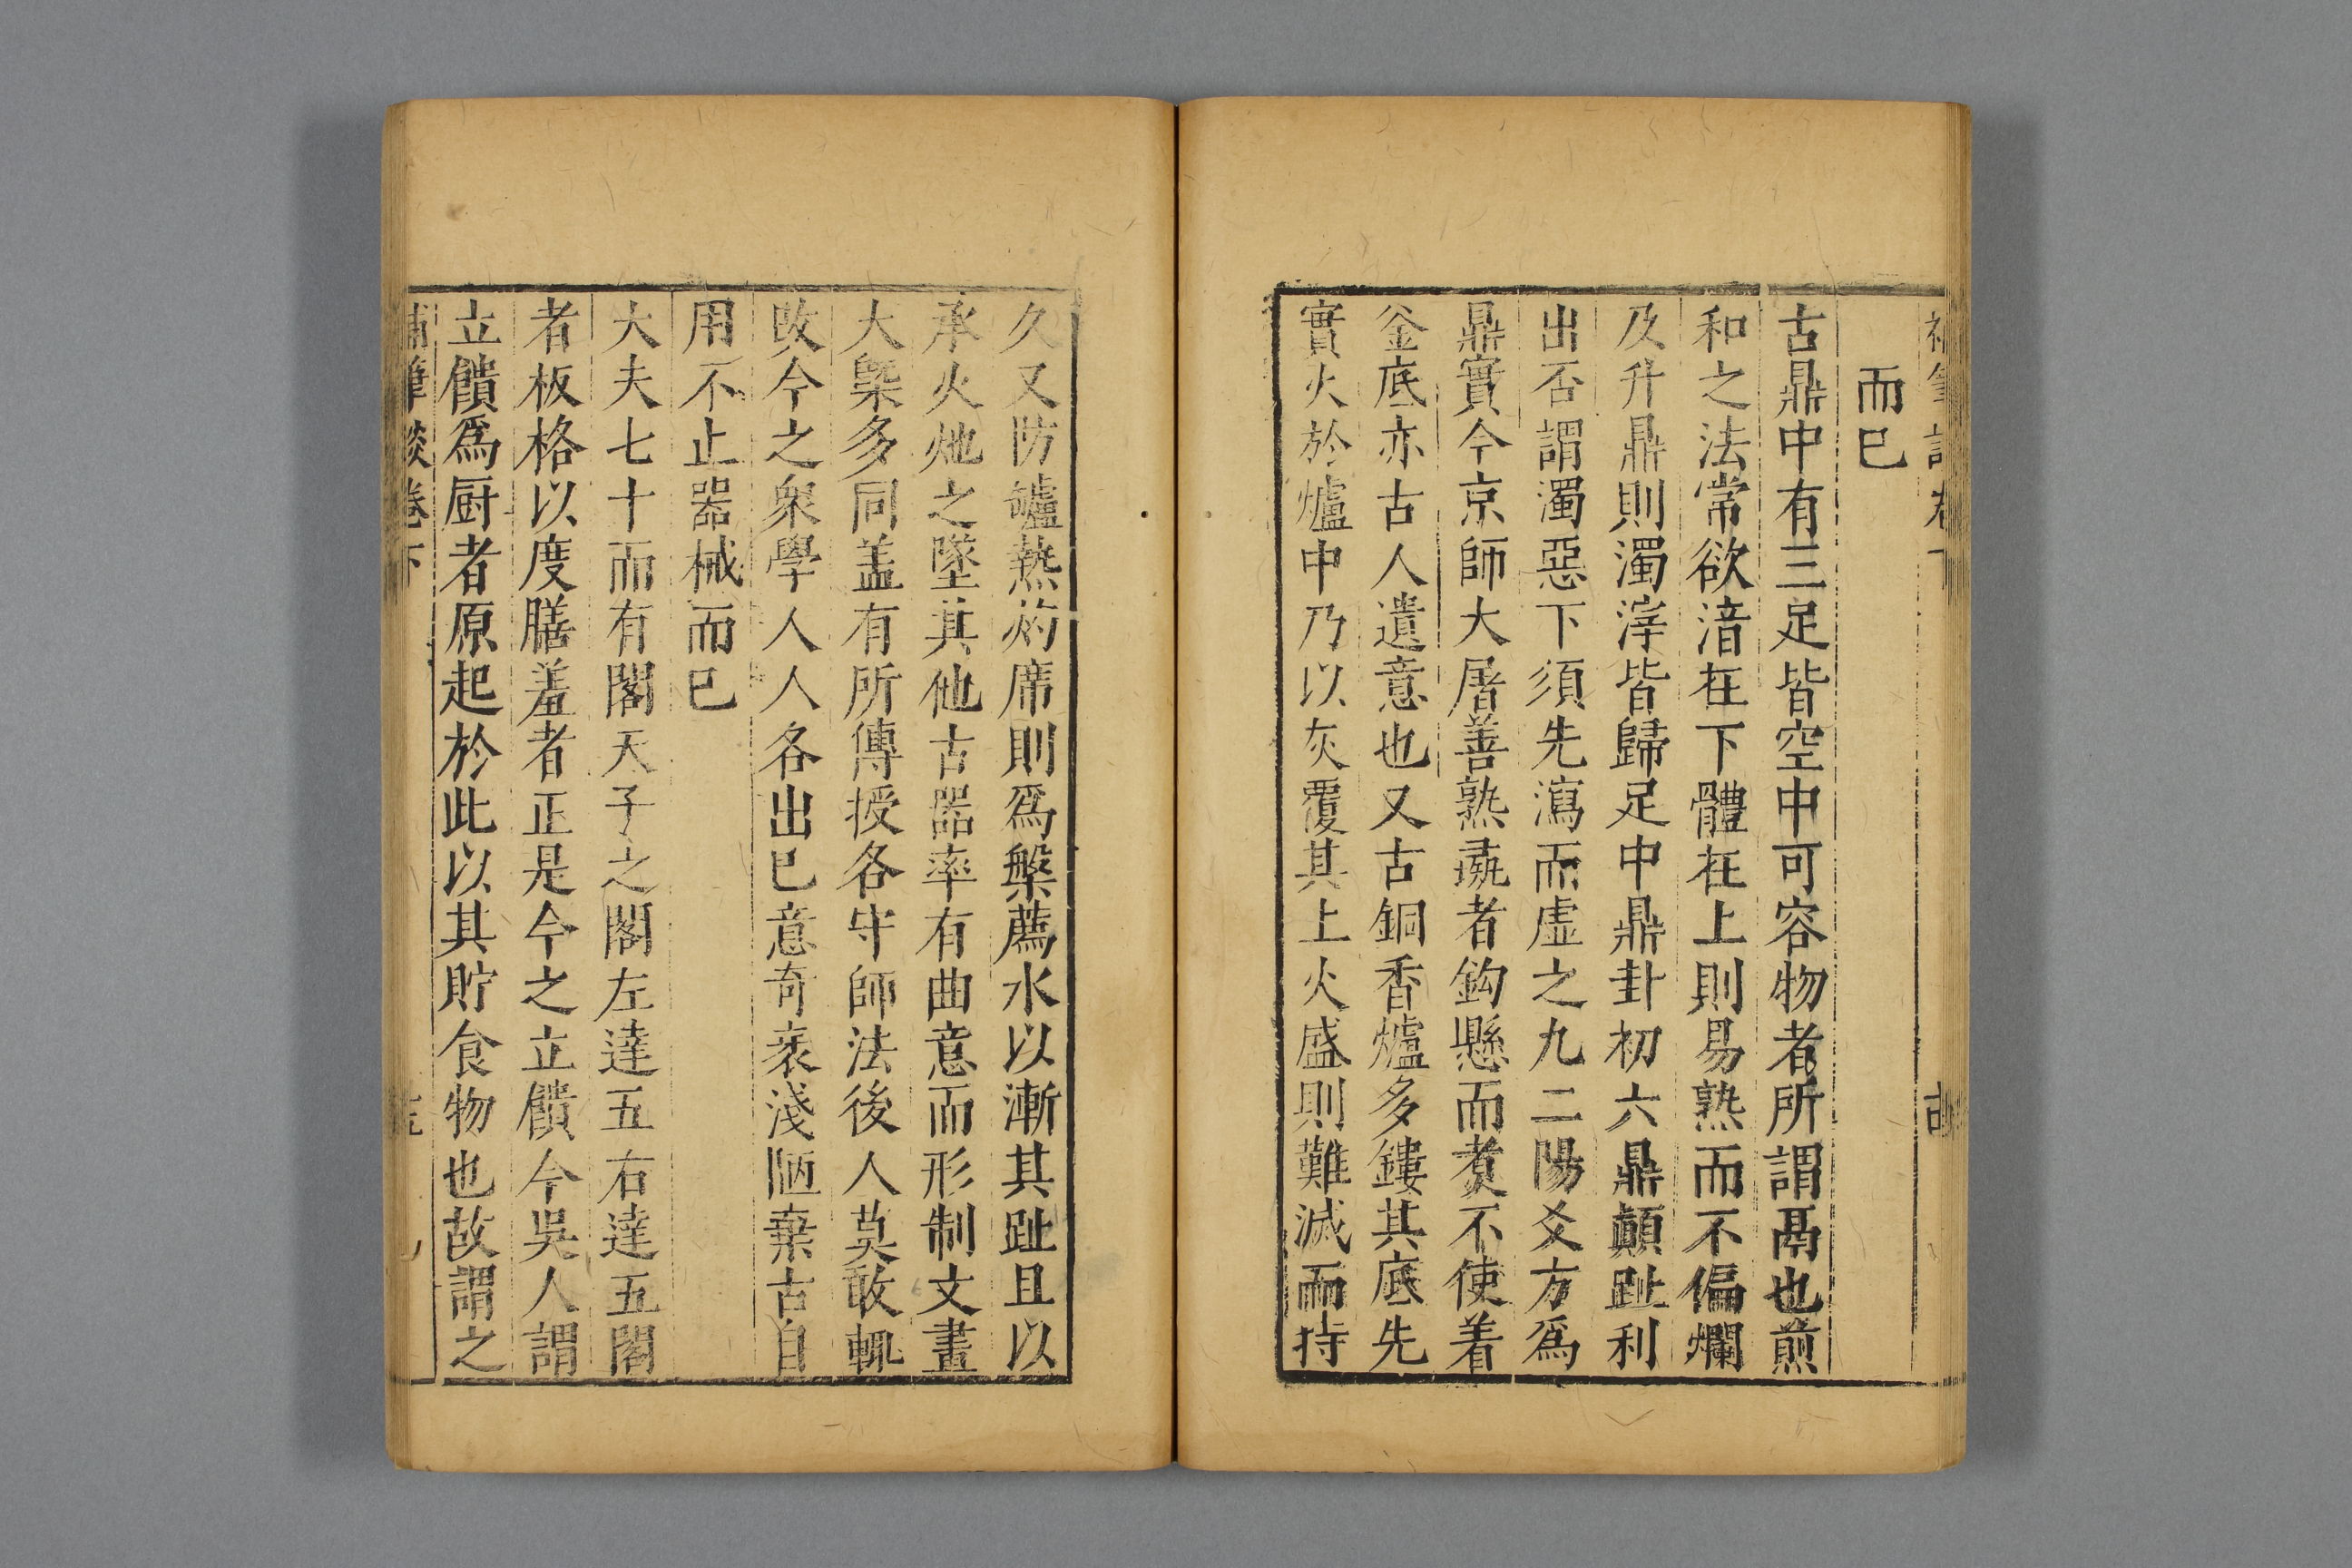 而巳
古鼎中有三足皆空中可容物者所謂鬲也煎
和之法常欲湆在下體在上則易熟而不偏爛
及升鼎則濁滓皆歸足中鼎卦初六鼎顛趾利
出否謂濁惡下須先瀉而虛之九二陽爻方爲
鼎實今京師大屠善熟彘者鈎懸而煑不使着
釜底亦古人遺意也又古銅香爐多鏤其底先
實火於爐中乃以灰覆其上火盛則難滅而持
久又防爐熱灼席則爲槃薦水以漸其趾且以
承火灺之墜其他古器率有曲意而形制文畫
大槩多同盖有所傳授各守師法後人莫敢輒
改今之衆學人人各出巳意奇衺淺陋棄古自
用不止器械而已
大夫七十而有閣天子之閣左達五右達五閣
者板格以度膳羞者正是今之立饋今吳人謂
立饋爲厨者原起於此以其貯食物也故謂之
補筆談卷下